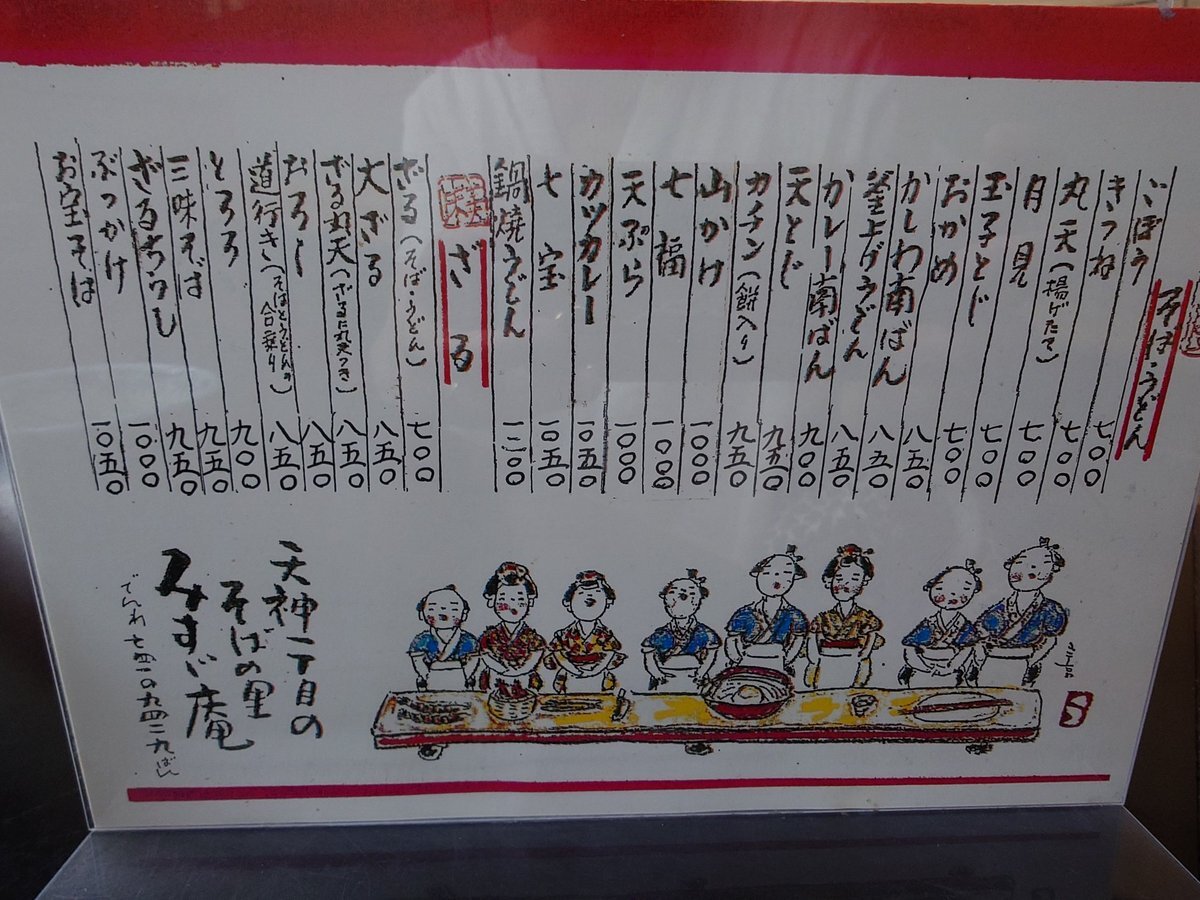 そば・うどん
ごぼう 七〇〇
きつね 七〇〇
丸天(揚げたて) 七〇〇
月見 七〇〇
玉子とじ 七〇〇
おかめ 八五〇
かしわ南ばん 八五〇
釜上げうどん 八五〇
カレー南ばん 九〇〇
天とじ 九五〇
カチン(餅入り) 九五〇
山かけ 一〇〇〇
七福 一〇〇〇
天ぷら 一〇〇〇
カツカレー 一〇五〇
七宝 一〇五〇
鍋焼うどん
ざる
ざる(そば・うどん) 七〇〇
大ざる 八五〇
ざる丸天(ざるに丸天つき) 八五〇
おろし 八五〇
道行き(そばとうどんの合乗り) 八五〇
とろろ 九〇〇
三味そば 九五〇
ざるちらし 九五〇
ぶっかけ 一〇〇〇
お宝そば 一〇五〇
天神一丁目の
そばの里
みすゞ庵
でんわ 七四一の九四二九ばん